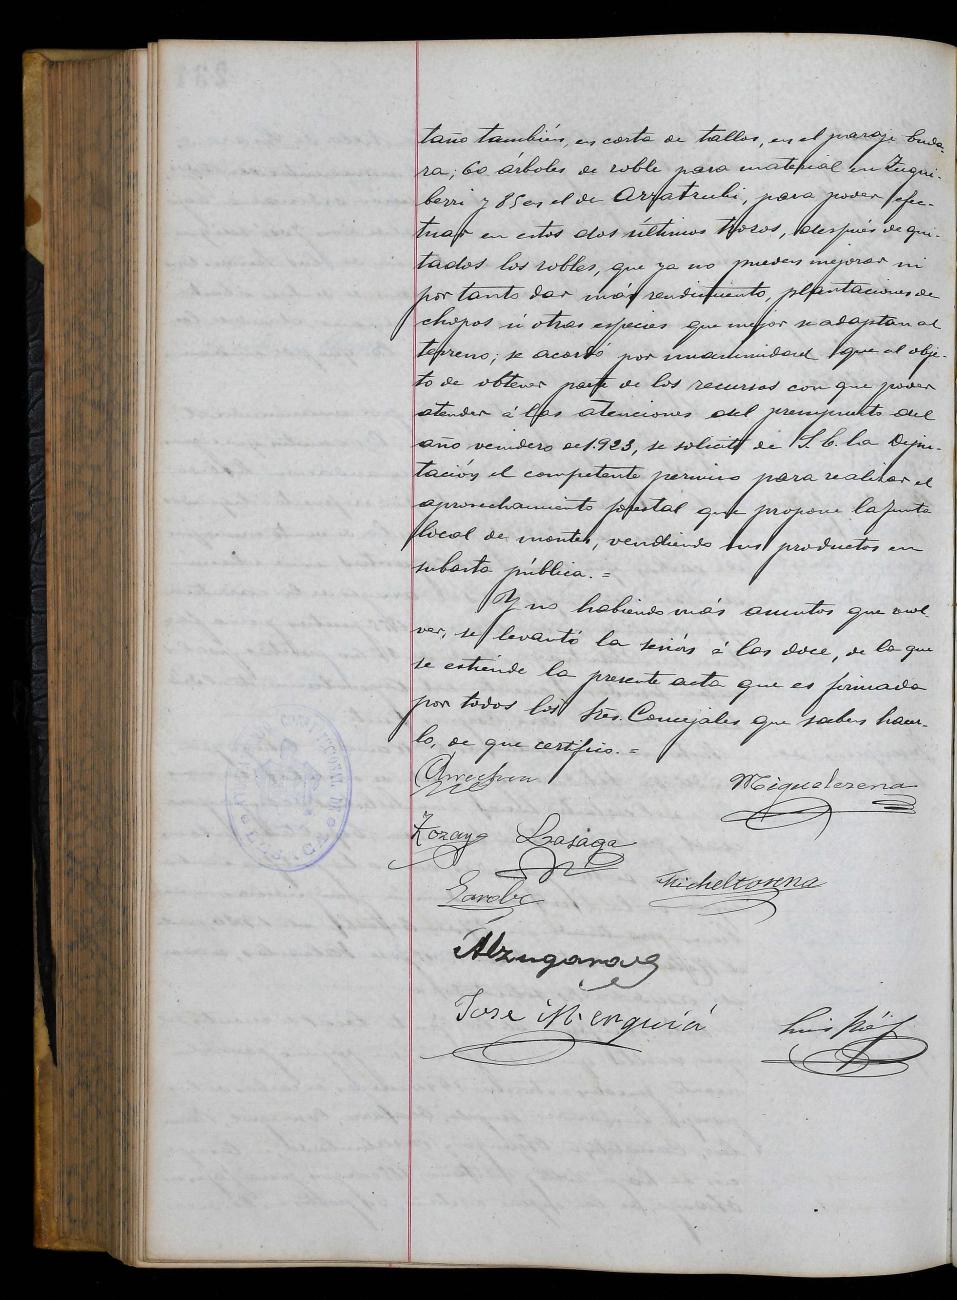 taño también, en corta de tallos, en el paraje Enda-
ra; 60 árboles de roble para material en Zuqui-
berri y 85 en el de Arratzubi, para poder efec-
tuar en estos dos últimos trozos, después de qui-
tados los robles, que ya no pueden mejorar ni
por tanto dar más rendimiento, plantaciones de
chopos ú otras especies que mejor se adaptan al
terreno; se acordó por unanimidad que al obje-
to de obtener parte de los recursos con que poder
atender á las atenciones del presupuesto del
año venidero de 1.923, se solicite de S. E. la Dipu-
tación el competente permiso para realizar el
aprovechamiento forestal que propone la Junta
local de montes, vendiendo sus productos en
subasta pública. =
Y no habiendo más asuntos que resol
ver, se levantó la sesión á las doce, de la que
se estiende la presente acta que es firmada
por todos los Sres. Concejales que saben hacer-
lo, de que certifico. =
Arrechea Miguelerena
Zozaya Lasaga
Micheltorena
Alzugaray
Jose M. enguiá Luis